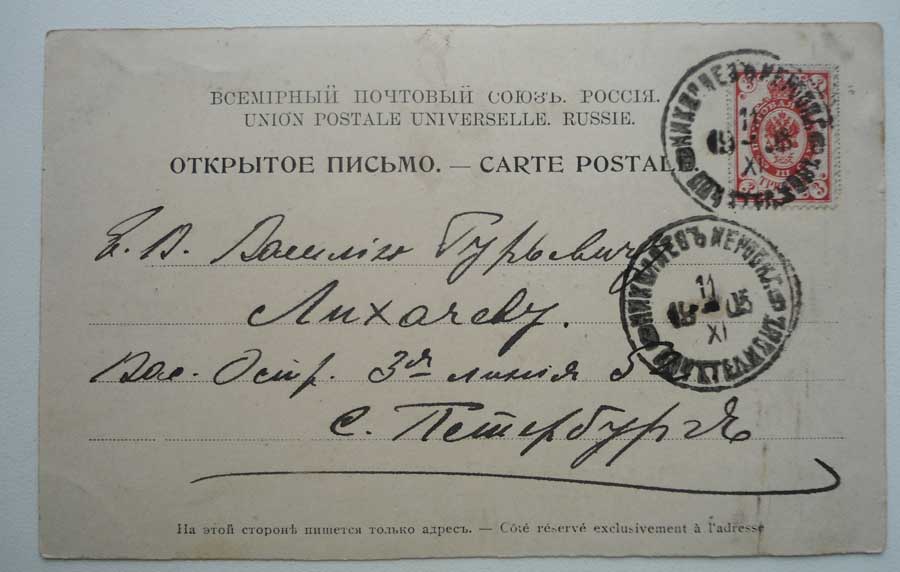 ВСЕМІРНЫЙ ПОЧТОВЫЙ СОЮЗЪ. РОССІЯ.
UNION POSTALE UNIVERSELLE. RUSSIE.
ОТКРЫТОЕ ПИСЬМО. — CARTE POSTALE.
3 3
11
19 05
XI
3 3
Е. В. Василію Гурьевичу
НИКОЛАЕВЪ ХЕРСОНС.
11
19 05
XI
Лихачеву.
Вас. Остр. 3я линія 5
С. Петербургъ
На этой сторонѣ пишется только адресъ. — Côté réservé exclusivement à l'adresse